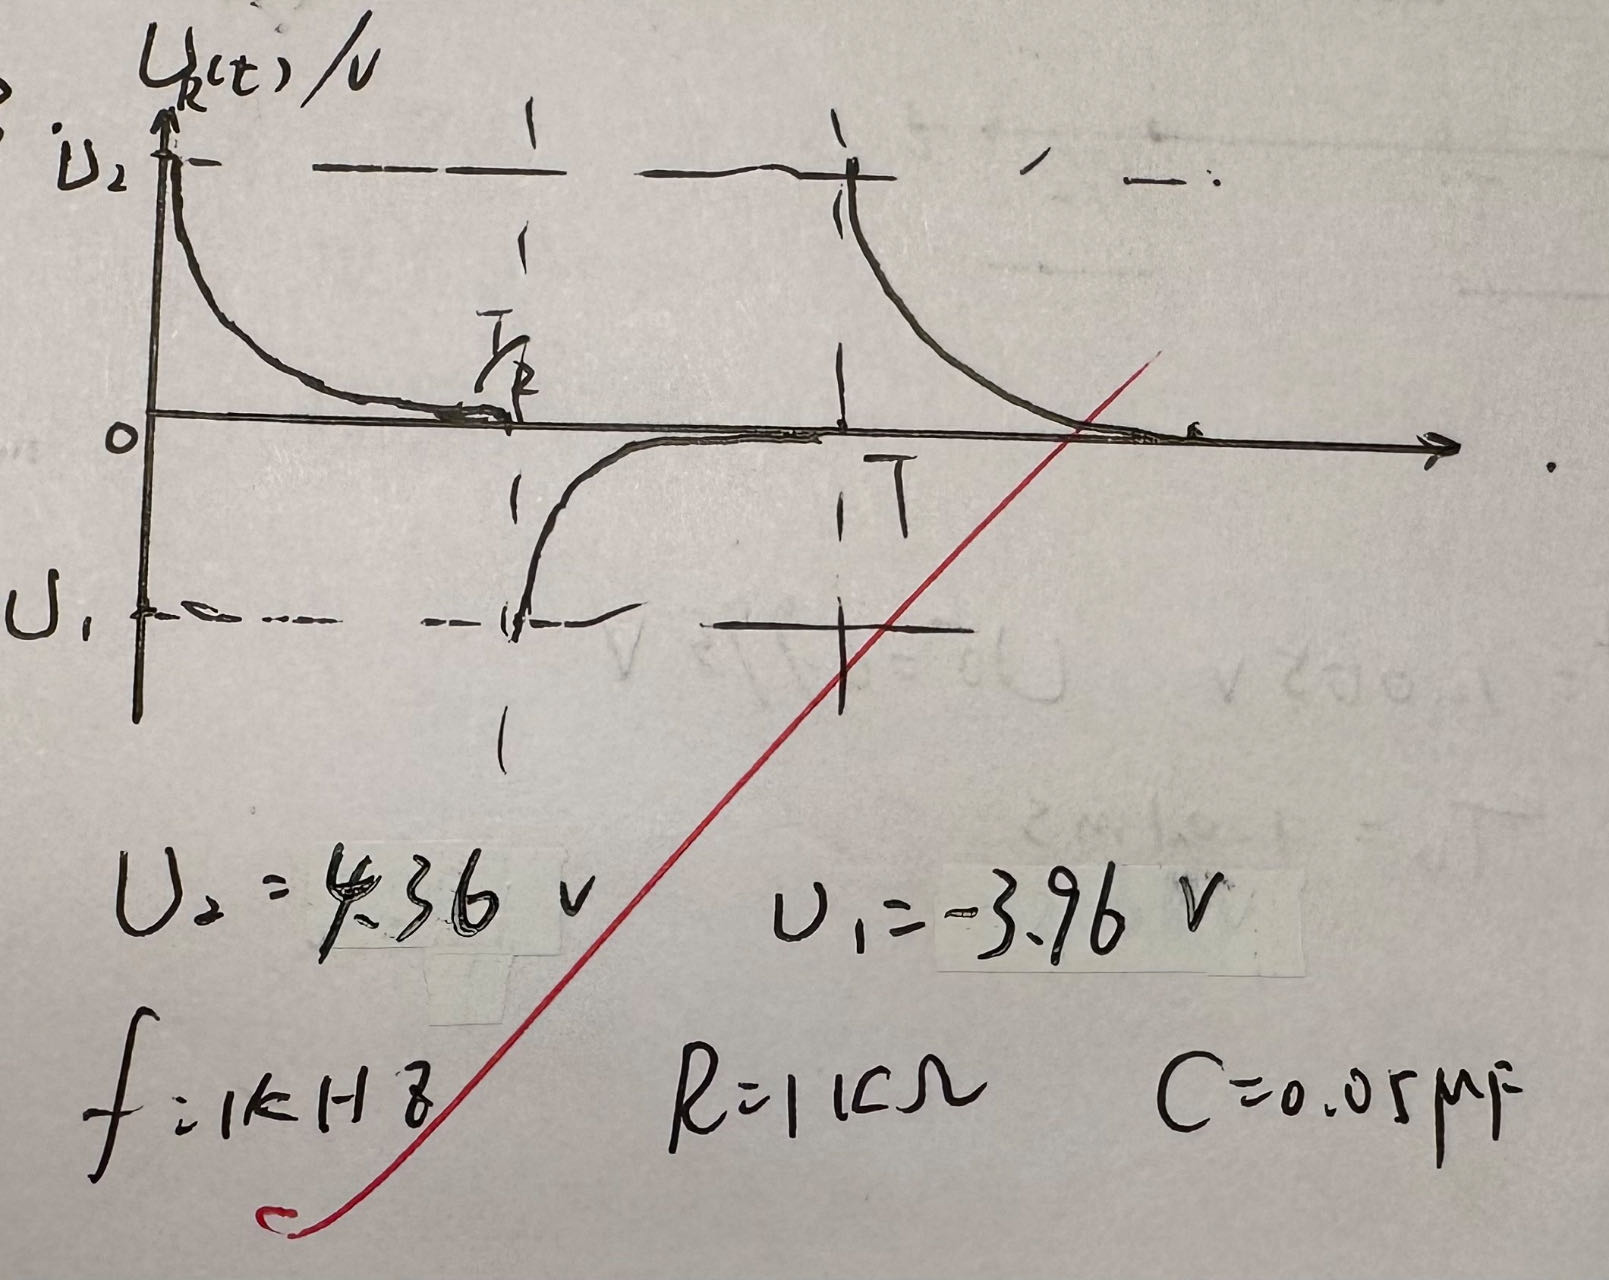 U_R(t)/V
U₂
T/2
0
T
U₁
U₂ = 4.36 V U₁ = -3.96 V
f = 1KHz R = 1KΩ C = 0.05μF